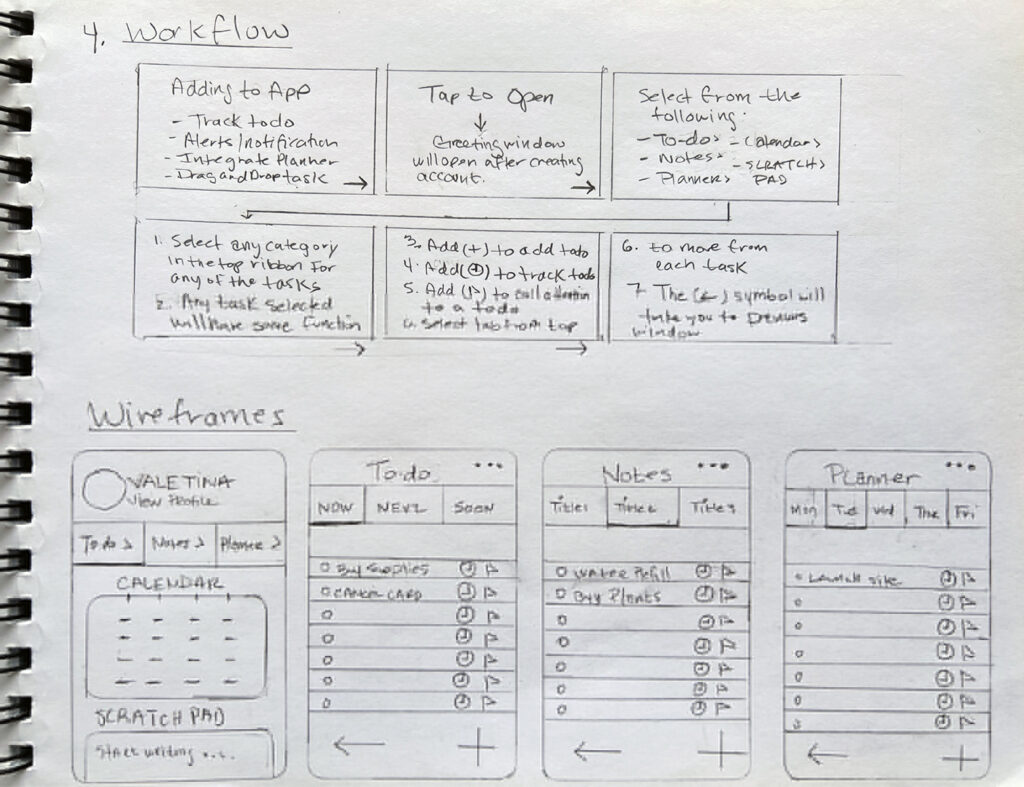 4. Workflow
Adding to App
- Track todo
- Alerts/notification
- Integrate Planner
- Drag and Drop task
Tap to Open
Greeting window
will open after creating
account.
Select from the
following:
- To-do> - Calendar>
- Notes> - SCRATCH>
- Planner> PAD
1. Select any category
in the top ribbon for
any of the tasks
2. Any task selected
will have same function
3. Add (+) to add todo
4. Add ( ) to track todo
5. Add ( ) to call attention
to a todo
6. Select tab from top
6. to move from
each task
7. The (←) symbol will
take you to
window
Wireframes
VALETINA
View Profile
To do > Notes > Planner >
CALENDAR
SCRATCH PAD
Start writing ....
To-do ...
NOW NEXT SOON
Buy Supplies
CARD
Notes ...
Titles Titles Titles
Water Refill
Buy Plants
Planner ...
Mon Tue Wed Thu Fri
Launch site